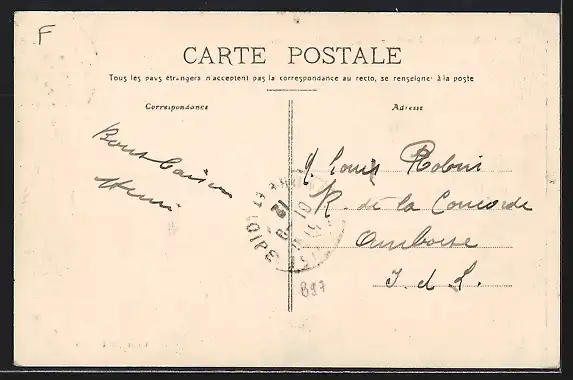 F
CARTE POSTALE
Tous les pays étrangers n'acceptent pas la correspondance au recto, se renseigner à la poste
Correspondance
Adresse
Bons baisers
Henri
M. Louis
R. de la Concorde
Amboise
I. et L.
B97